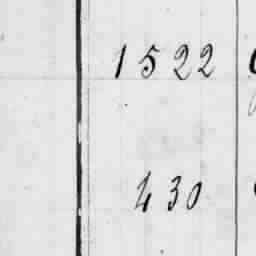 1522
430